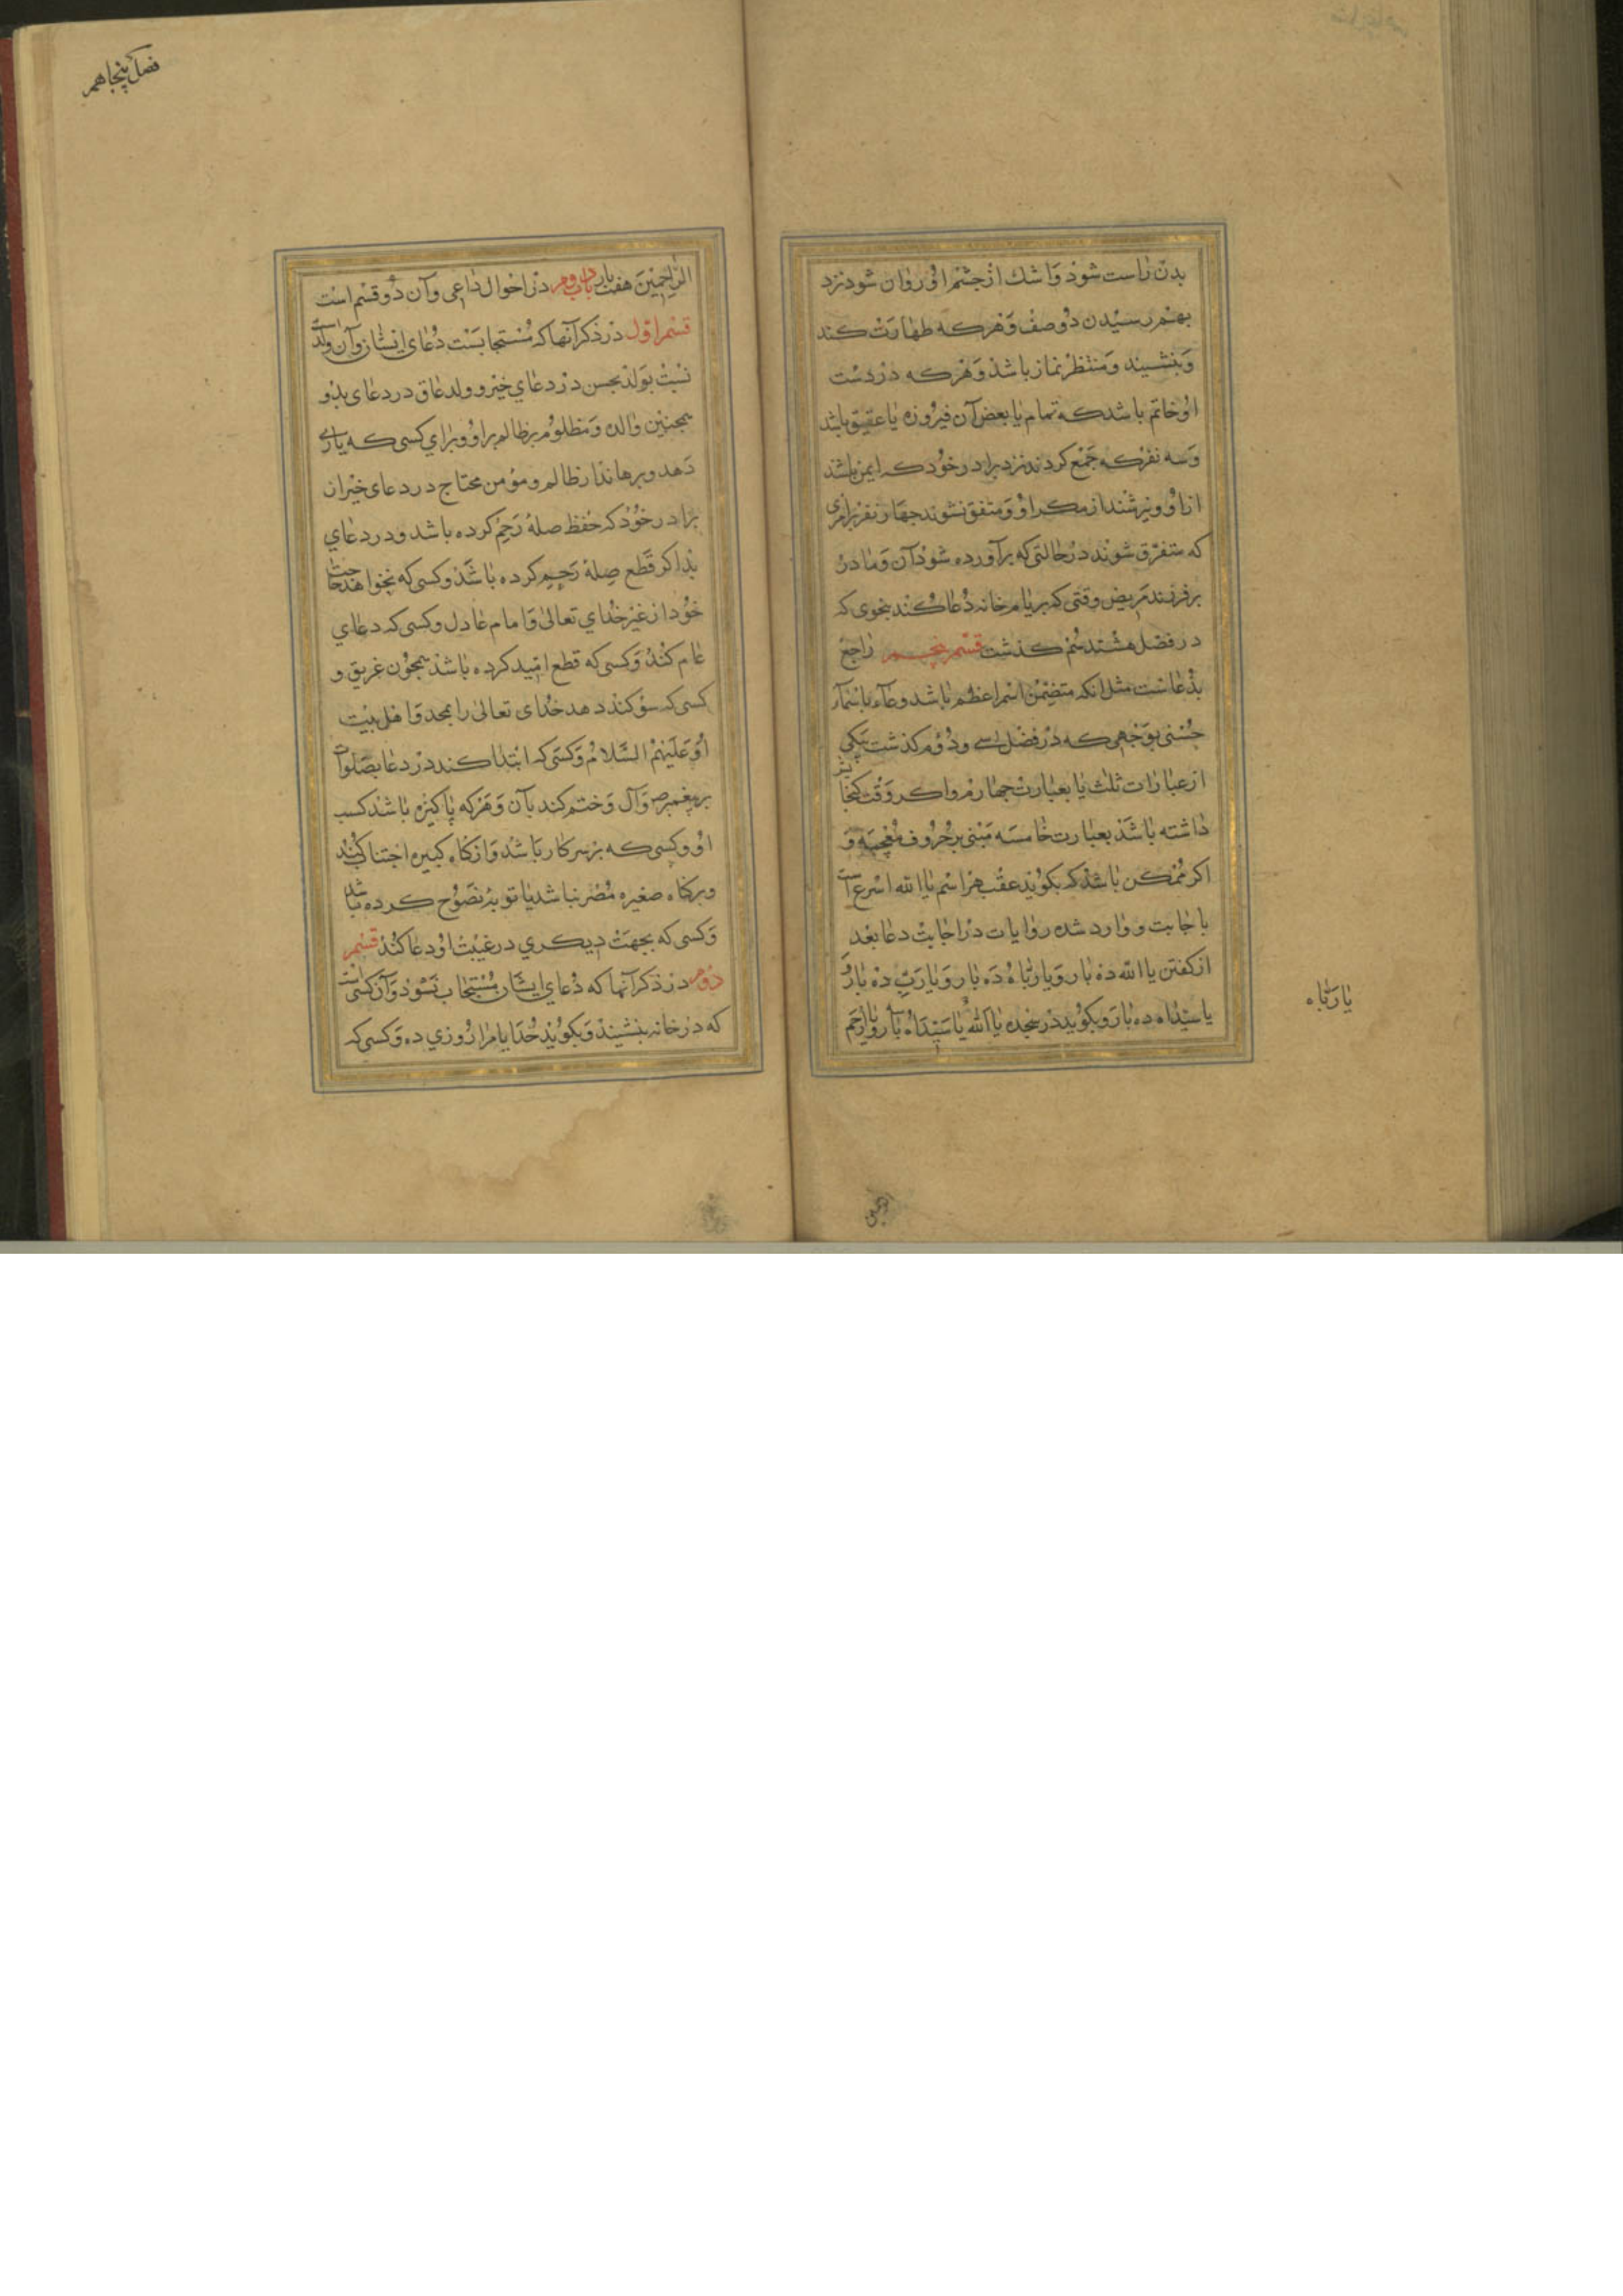 بدن راست شود و اشك از چشم او روان شود نزد
بهم رسیدن دو صف و هر که طهارت کند
و بنشیند و منتظر نماز باشد و هر که در دست
او خاتم باشد که تمام یا بعض آن فیروزه یا عقیق باشد
و سه نفر که جمع کردند نزد برادر خود که ایمن باشند
از او و نترسند از مکر او و متفق نشوند چهار نفر بر امری
که متفرق شوند در حالتی که برآورده شود آن و مادر
بر فرزند مریض وقتی که بر بام خانه دعا کند بنحوی که
در فصل هشتدهم گذشت قسم پنجم راجع
بدعاست مثل انکه متضمن اسم اعظم باشد و دعاء باسماء
حسنی بوجهی که در فصل سی و دوم گذشت بیکی
از عبارات ثلث یا بعبارت چهارم و اگر وقت گنجایش
داشته باشد بعبارت خامسه مبنی بر حروف معجمه و
اگر ممکن باشد که بگوید عقب هر اسم یا الله اسرع است
باجابت و وارد شده روایات در اجابت دعا بعد
از گفتن یا الله ده بار و یا رباه ده بار و یا رب ده بار و
یا سیداه ده بار و بگوید در سجده یا الله یا سیداه بار و یا ارحم
یا رباه
فصل پنجاهم
الراحمین هفت بار باب دوم در احوال داعی و آن دو قسم است
قسم اول در ذکر آنها که مستجابست دعای ایشان و آن والد است
نسبت بولد محسن در دعای خیر و ولد عاق در دعای بد و
همچنین والده و مظلوم بر ظالم بر او و برای کسی که یاری
دهد و برهاند از ظالم و مؤمن محتاج در دعای خیر ان
برادر خود که حفظ صله رحم کرده باشد و در دعای
بد اگر قطع صله رحم کرده باشد و کسی که نخواهد حاجت
خود از غیر خدای تعالی و امام عادل و کسی که دعای
عام کند و کسی که قطع امید کرده باشد همچون غریق و
کسی که سوگند دهد خدای تعالی را بمحمد و اهل بیت
او علیهم السلام و کسی که ابتدا کند در دعا بصلوات
بر پیغمبر ص و آل و ختم کند بآن و هر که پاکیزه باشد کسب
او و کسی که بر سر کار باشد و از گناه کبیره اجتناب کند
و بر گناه صغیره مُصر نباشد یا توبه نصوح کرده باشد
و کسی که بجهت دیگری در غیبت او دعا کند قسم
دوم در ذکر آنها که دعای ایشان مستجاب نشود و آن کسی است
که در خانه بنشیند و بگوید خدایا مرا روزی ده و کسی که